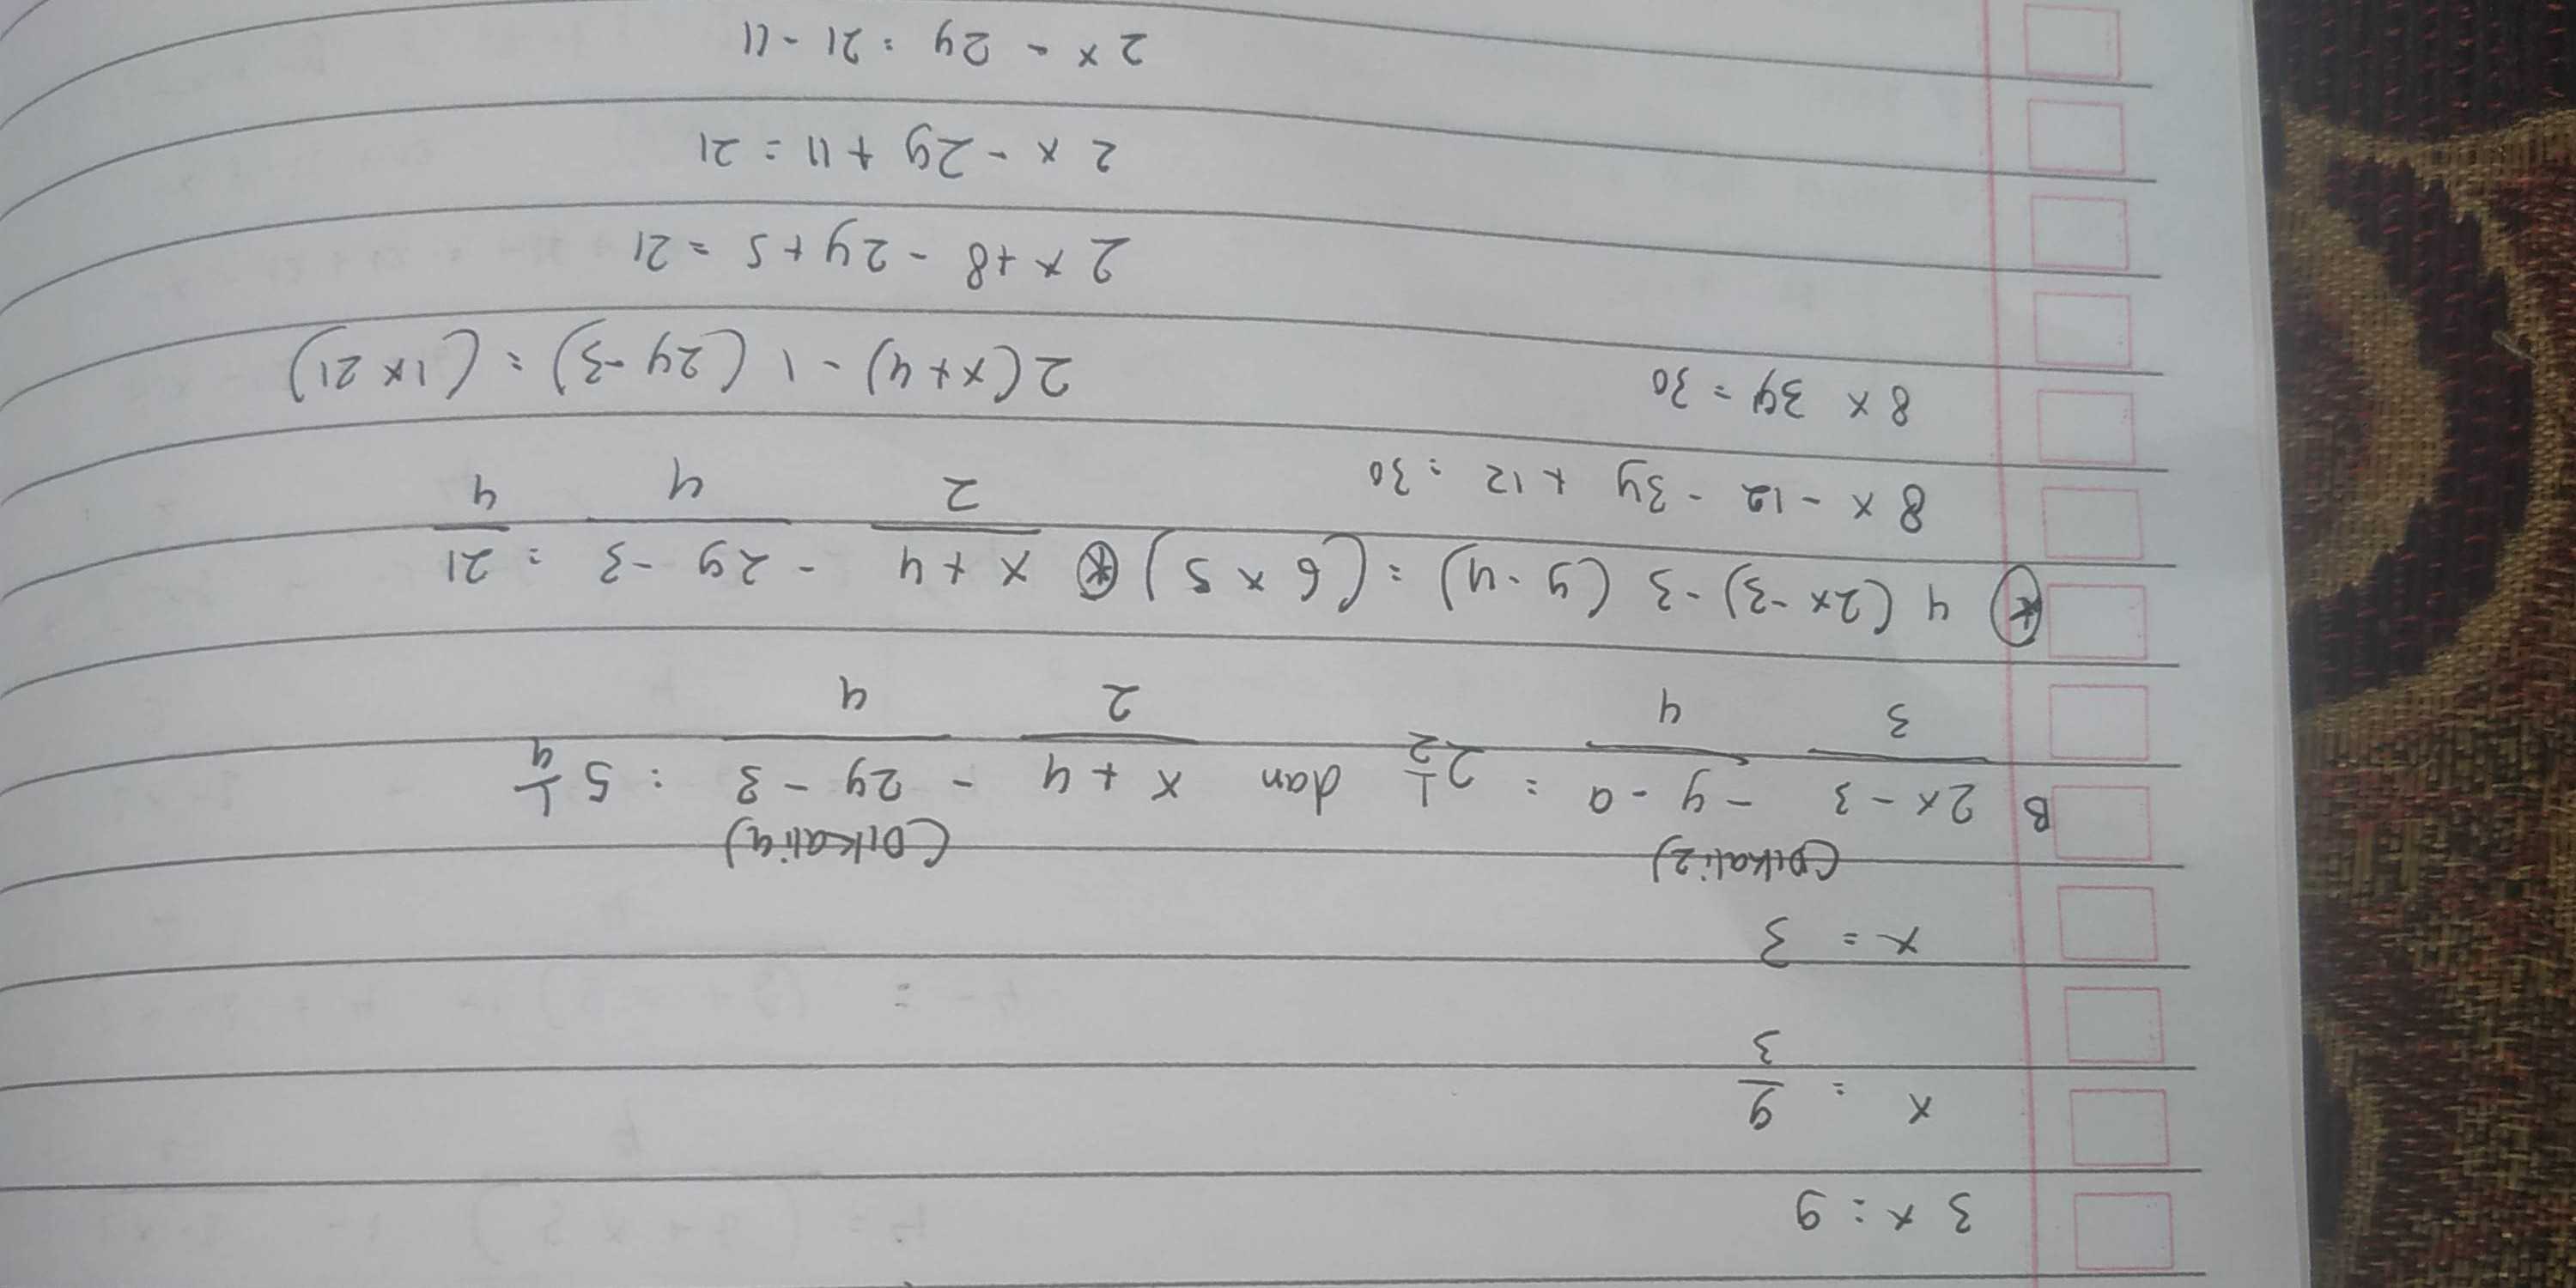 3x = 9
x = 9
3
x = 3
(Dikali 2) (Dikali 4)
B 2x - 3 - y - a = 2 1/2 dan x + 4 - 2y - 3 = 5 1/4
3 4 2 4
* 4 (2x - 3) - 3 (y - 4) = (6 x 5) * x + 4 - 2y - 3 = 21
8x - 12 - 3y + 12 = 30 2 4 4
8x 3y = 30 2 (x + 4) - 1 (2y - 3) = (1 x 21)
2x + 8 - 2y + 5 = 21
2x - 2y + 11 = 21
2x - 2y = 21 - 11